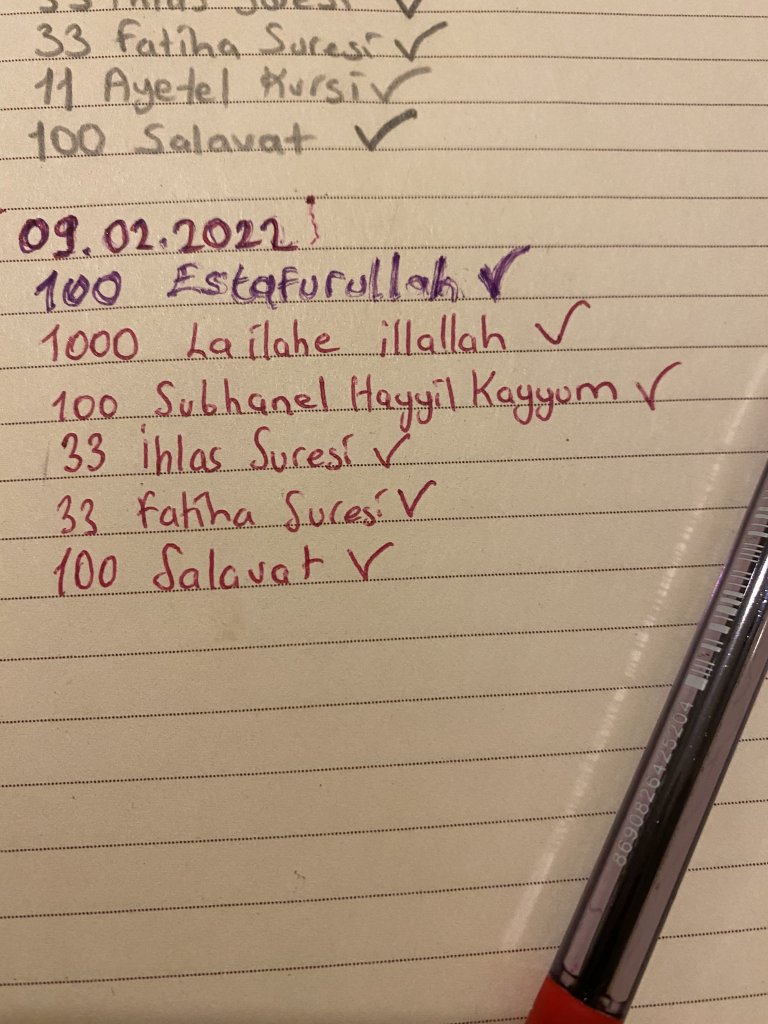 33 İhlas Suresi ✓
33 Fatiha Suresi ✓
11 Ayetel Kürsi ✓
100 Salavat ✓
09.02.2022
100 Estafurullah ✓
1000 La ilahe illallah ✓
100 Subhanel Hayyil Kayyum ✓
33 İhlas Suresi ✓
33 Fatiha Suresi ✓
100 Salavat ✓
8690826425204